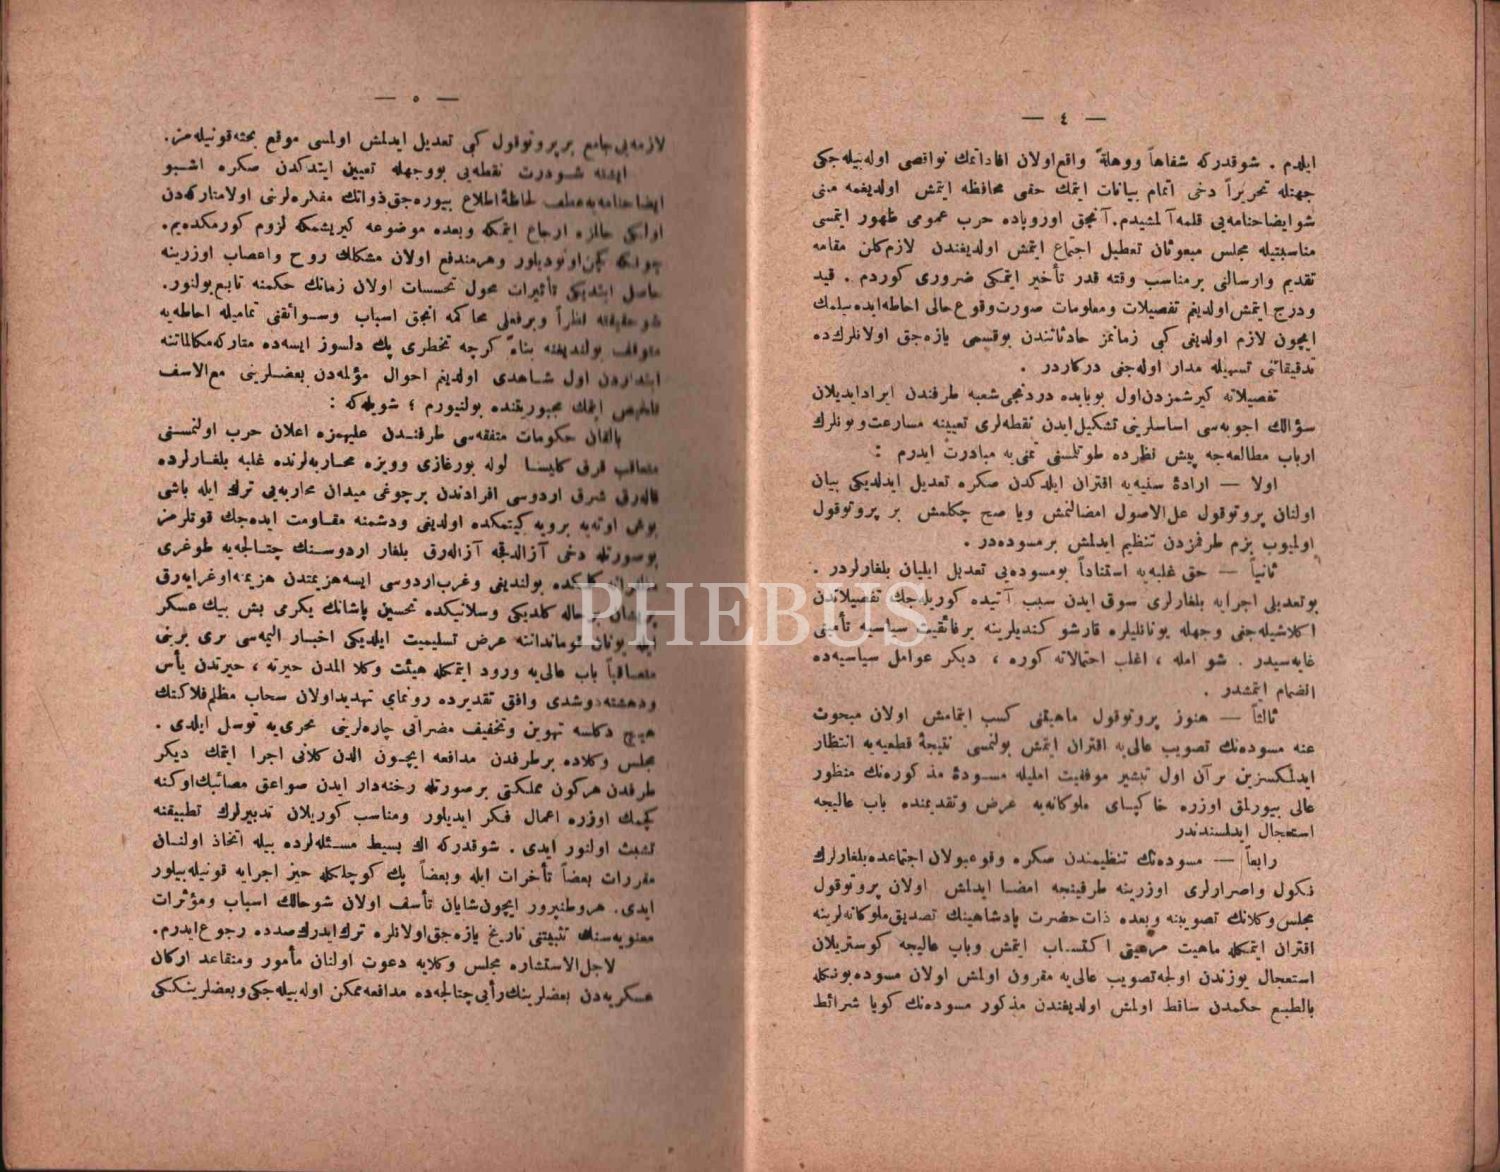 — ٤ —
ايلدم . شوقدركه شفاهاً ووهلةً واقع‌اولان افاداتمك نواقصى اوله‌بيله‌جكى
جهتله تحريراً دخى اتمام بيانات ايتمك حقى محافظه ايتمش اولديغمه مبنى
شو ايضاحنامه‌يى قلمه‌آلمشيدم. آنجق اوروپاده حرب عمومى ظهور ايتمسى
مناسبتيله مجلس مبعوثان تعطيل اجتماع ايتمش اولديغندن لازم‌كلن مقامه
تقديم وارسالنى برمناسب وقته قدر تأخير ايتمكى ضرورى كوردم . قيد
ودرج ايتمش‌اولديغم تفصيلات ومعلومات صورت‌وقوع‌حالى احاطه‌ايده‌بيلمك
ايچون لازم اولديغى كبى زمانمز حادثاتندن بوقسمى يازه‌جق اولانلرك‌ده
تدقيقاتنى تسهيله مدار اوله‌جغى دركاردر .
تفصيلاته كيرشمزدن‌اول بوبابده دردنجى‌شعبه طرفندن ايرادايديلان
سؤالك اجوبه‌سى اساسلرينى تشكيل‌ايدن نقطه‌لرى تعيينه مسارعت‌وبونلرك
ارباب مطالعه‌جه پيش نظرده طوتلمسنى تمنى‌يه مبادرت ايدرم :
اولا — ارادۀ سنيه‌يه اقتران ايلدكدن صكره تعديل ايدلديكى بيان
اولنان پروتوقول على‌الاصول امضالنمش ويا صح چكلمش بر پروتوقول
اولميوب بزم طرفمزدن تنظيم ايدلمش برمسوده‌در .
ثانياً — حق غلبه‌يه استناداً بومسوده‌يى تعديل ايليان بلغارلردر .
بوتعديلى اجرايه بلغارلرى سوق ايدن سبب آتيده كوريله‌جك تفصيلاتدن
اكلاشيله‌جغى وجهله يونانليلره قارشو كنديلرينه برفائقيت سياسيه تأمينى
غايه‌سيدر . شو امله ، اغلب احتمالاته كوره ، ديكر عوامل سياسيه‌ده
انضمام ايتمشدر .
ثالثاً — هنوز پروتوقول ماهيتنى كسب ايتمامش اولان مبحوث
عنه مسوده‌نك تصويب عالى‌يه اقتران ايتمش بولنمسى نتيجۀ قطعيه‌يه انتظار
ايدلمكسزين برآن اول تبشير موفقيت امليله مسودۀ مذكوره‌نك منظور
عالى بيورلمق اوزره خاكپاى ملوكانه‌يه عرض وتقديمنده باب عاليجه
استعجال ايدلمسندندر
رابعاً — مسوده‌نك تنظيمندن صكره وقوعبولان اجتماعده‌بلغارلرك
نكول واصرارلرى اوزرينه طرفينجه امضا ايدلمش اولان پروتوقول
مجلس‌وكلانك تصويبنه وبعده ذات‌حضرت پادشاهينك تصديق‌ملوكانه‌لرينه
اقتران ايتمكله ماهيت مرعيتى اكتساب ايتمش وباب عاليجه كوستريلان
استعجال يوزندن اولجه‌تصويب عالى‌يه مقرون اولمش اولان مسوده‌بونكله
بالطبع حكمدن ساقط اولمش اولديغندن مذكور مسوده‌نك كويا شرائط
— ٥ —
لازمه‌يى‌جامع برپروتوقول كبى تعديل ايدلمش اولمسى موقع بحثه‌قونيله‌مز.
ايشته شودرت نقطه‌يى بووجهله تعيين ايتدكدن صكره اشبو
ايضاحنامه‌يه‌عطف لحاظۀ‌اطلاع بيوره‌جق‌ذواتك مفكره‌لرينى اولامتاركه‌دن
اولكى حاللره ارجاع ايتمكه وبعده موضوعه كيريشمكه لزوم كورمكده‌يم.
چونكه كچن‌اونوديلور وهرمندفع اولان مشكلك روح واعصاب اوزرينه
حاصل ايتديكى تأثيرات محول تحسسات اولان زمانك حكمنه تابع‌بولنور.
شو حقيقته نظراً وبرفعلى محاكمه انجق اسباب وسوائقنى تماميله احاطه‌يه
متوقف بولنديغنه بناءً كرچه تخطرى پك دلسوز ايسه‌ده متاركه‌مكالماتنه
ابتداردن اول شاهدى اولديغم احوال مؤلمه‌دن بعضلرينى مع‌الاسف
تلخيص ايتمك مجبوريتنده بولنيورم ؛ شويله‌كه :
بالقان حكومات متفقه‌سى طرفندن عليهمزه اعلان حرب اولنمسنى
متعاقب قرق كليسا لوله بورغازى وويزه محاربه‌لرنده غلبه بلغارلرده
قاله‌رق شرق اردوسى افرادندن برچوغى ميدان محاربه‌يى ترك ايله باشى
بوش اوته‌يه برويه كيتمكده اولديغى ودشمنه مقاومت ايده‌جك قوتلرمز
بوصورتله دخى آزالدقجه آزاله‌رق بلغار اردوسنك چتالجه‌يه طوغرى
كلمكده بولنديغى وغرب‌اردوسى ايسه‌هزيمتدن هزيمته‌اوغرايه‌رق
پريشان برحاله كلديكى وسلانيكده تحسين پاشانك يكرمى بش بيك عسكر
ايله يونان قوماندانه عرض تسليميت ايلديكى اخبار اليمه‌سى برى برينى
متعاقباً باب عالى‌يه ورود ايتمكله هيئت وكلا المدن حيرته ، حيرتدن يأس
ودهشته‌دوشدى وافق تقديرده رونماى تهديداولان سحاب مظلم‌فلاكتك
هيچ دكلسه تهوين وتخفيف مضراتى چاره‌لرينى تحرى‌يه توسل ايلدى .
مجلس وكلاده برطرفدن مدافعه ايچون الدن كلانى اجرا ايتمك ديكر
طرفدن هركون مملكتى برصورتله رخنه‌دار ايدن صواعق مصائبك‌اوكنه
كچمك اوزره اعمال فكر ايديلور ومناسب كوريلان تدبيرلرك تطبيقنه
تشبث اولنور ايدى . شوقدركه اك بسيط مسئله‌لرده بيله اتخاذ اولنان
مقررات بعضاً تأخرات ايله وبعضاً پك كوجلكله حيز اجرايه قونيله‌بيلور
ايدى. هروطنپرور ايچون‌شايان تأسف اولان شوحالك اسباب ومؤثرات
معنويه‌سنك تثبيتنى تاريخ يازه‌جق‌اولانلره ترك‌ايدرك‌صدده رجوع‌ايدرم.
لاجل‌الاستشاره مجلس وكلايه دعوت اولنان مأمور ومتقاعد اركان
عسكريه‌دن بعضلرينك‌رأيى‌چتالجه‌ده مدافعه‌ممكن اوله‌بيله‌جكى‌وبعضلرينككى
PHEBUS